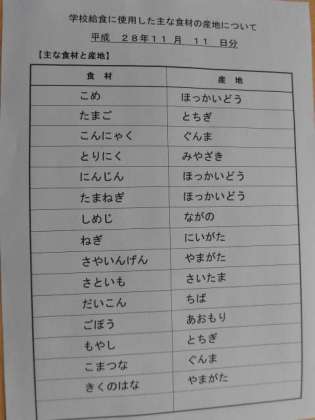 学校給食に使用した主な食材の産地について
平成 28年11月 11 日分
【主な食材と産地】
食 材 産 地
こめ ほっかいどう
たまご とちぎ
こんにゃく ぐんま
とりにく みやざき
にんじん ほっかいどう
たまねぎ ほっかいどう
しめじ ながの
ねぎ にいがた
さやいんげん やまがた
さといも さいたま
だいこん ちば
ごぼう あおもり
もやし とちぎ
こまつな ぐんま
きくのはな やまがた